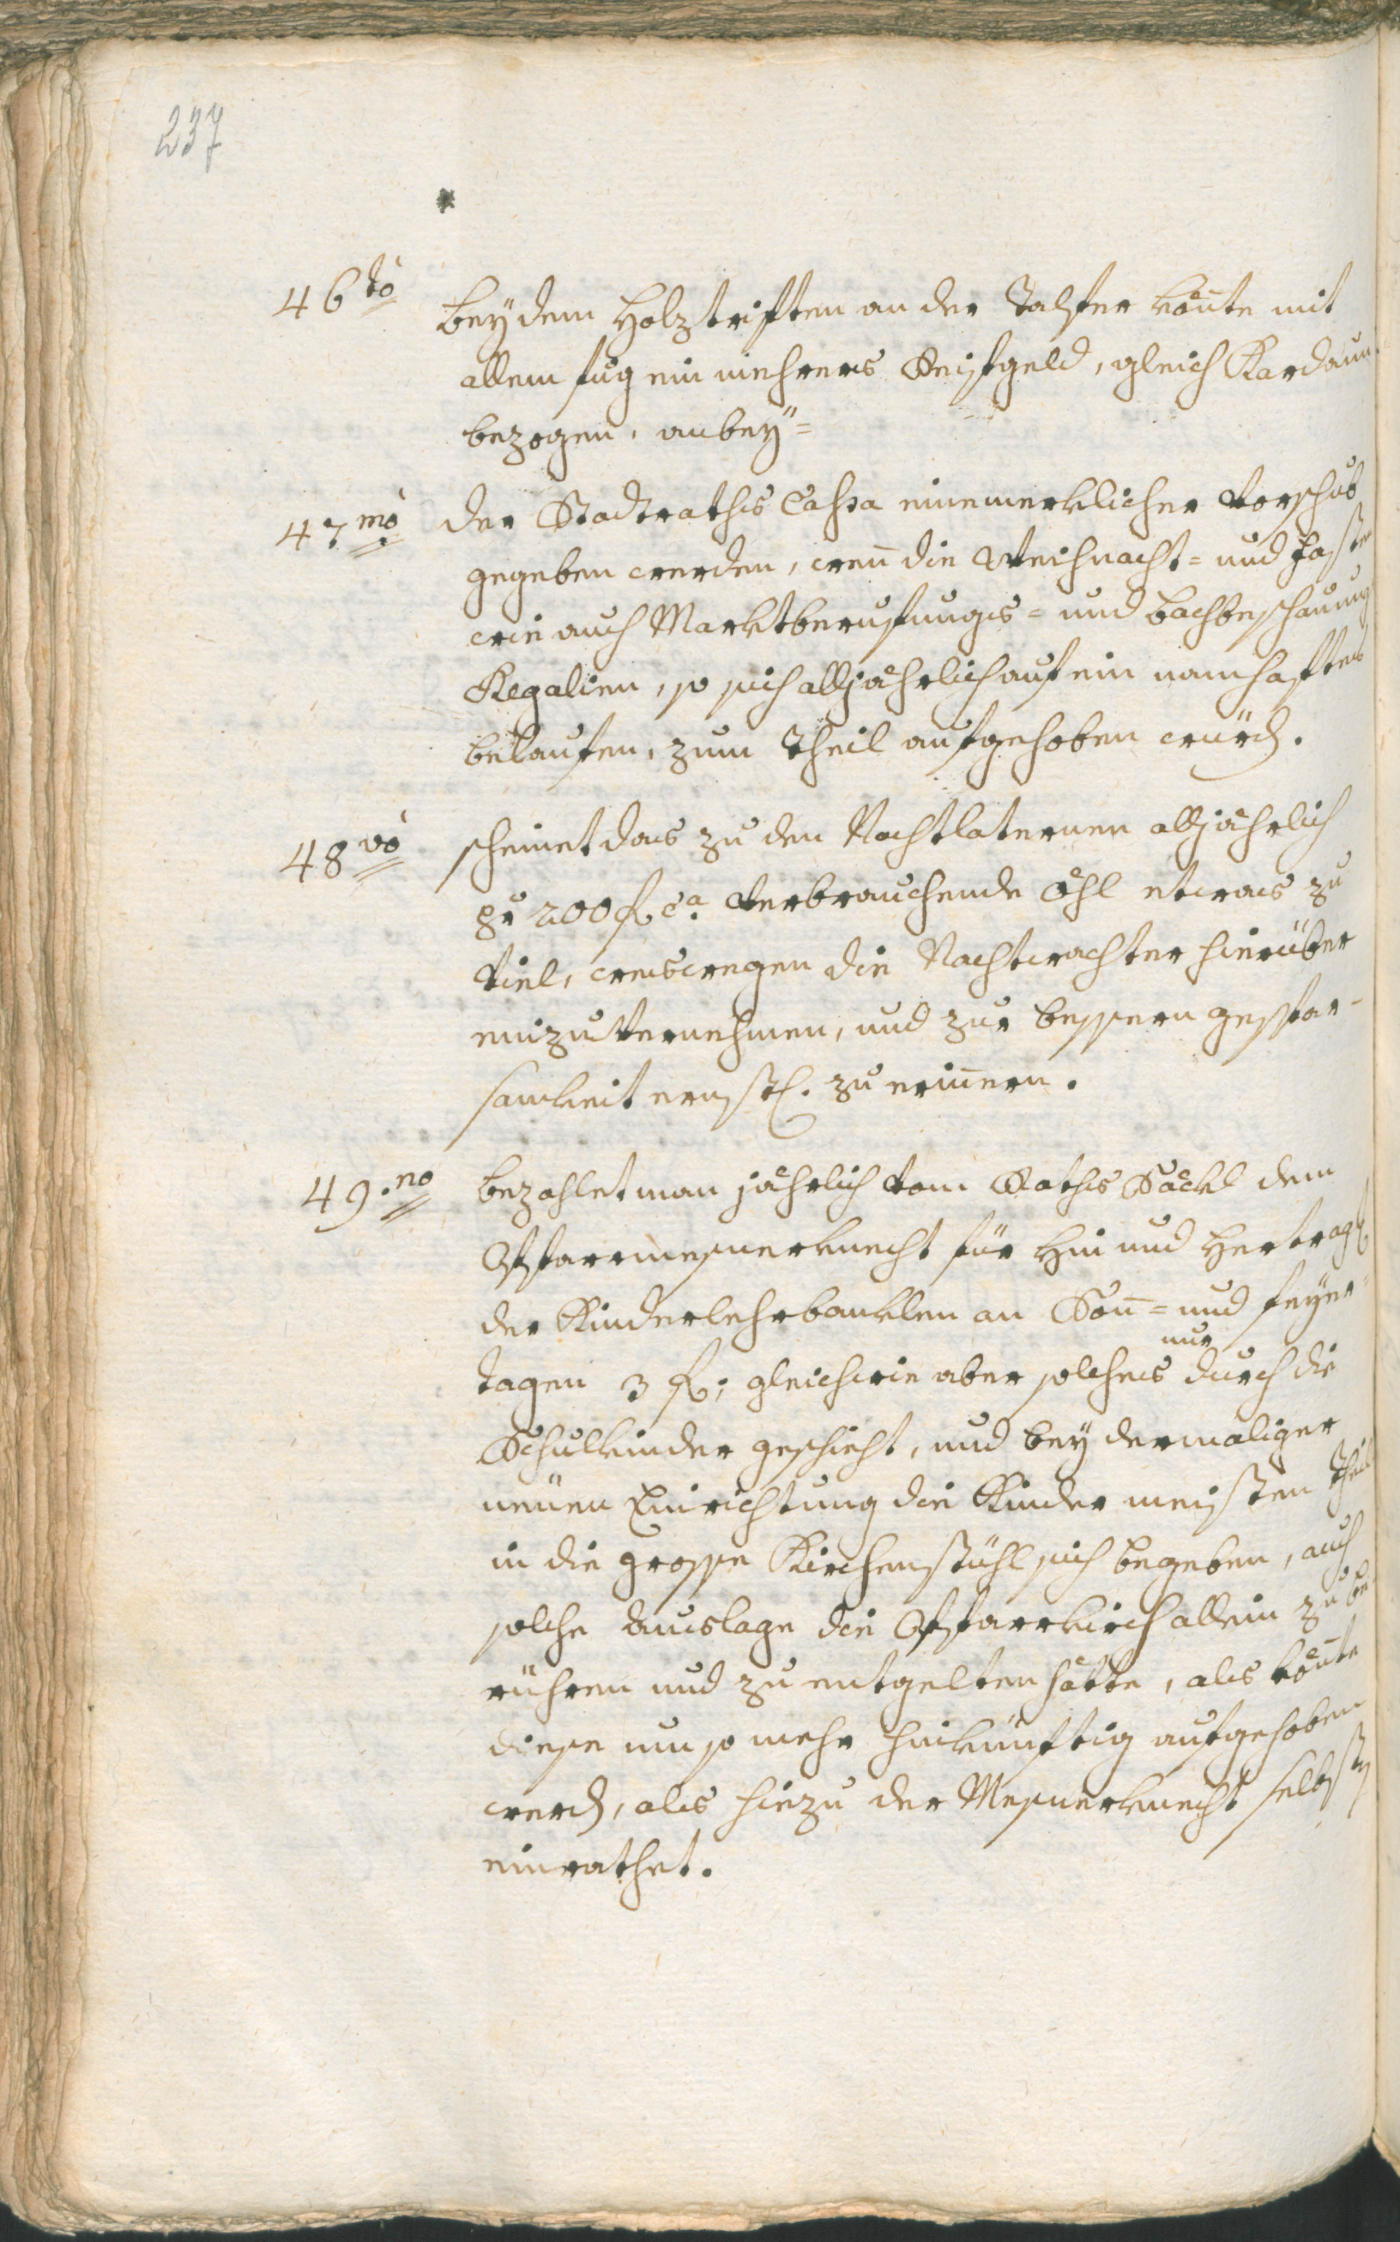 237
46to bey dem Holztriften an der Talfer könte mit
allem fug ein mehrers Reifgeld, gleich Kardaun
bezogen, anbey=
47mo der Stadtraths Cassa ein merklicher Vorschub
gegeben werden, wen die Weihnacht= und Fasten
wie auch Marktberufungs= und bachbeschauung
Regalien, so sich alljährlich auf ein namhaftes
belaufen, zum theil aufgehoben würd.
48vo scheinet das zu den Nachtlaternen alljährlich
pr 200 f ca. verbrauchende öhl etwas zu
viel, weswegen die Nachtwachter hierüber
einzuvernehmen, und zur bessern gespar-
samkeit ernstl. zu erinern.
49.no bezahlet man jährlich vom Raths Säckl dem
Pfarrmesnerknecht für hin und hertrag
der Kinderlehrbanklen an Son= und feyer=
tagen 3 f; gleichwie aber solches nur durch die
Schulkinder geschieht, und bey dermaliger
neüen Einrichtung die Kinder meisten theil
in die grosse Kirchenstühl sich begeben, auch
solche auslage die Pfarrkirch allein zu be
rühren und zu entgelten hätte, als könte
diese um so mehr hinkünftig aufgehoben
werd, als hiezu der Mesnerknecht selbst
einrathet.